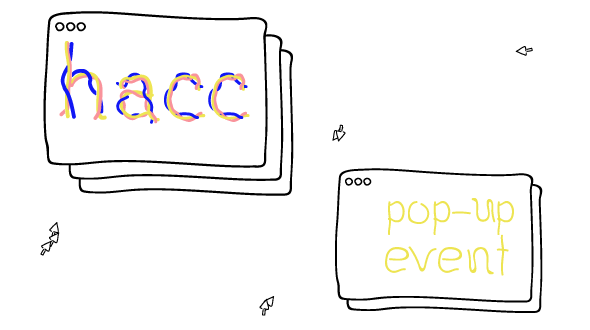 hacc
pop-up
event